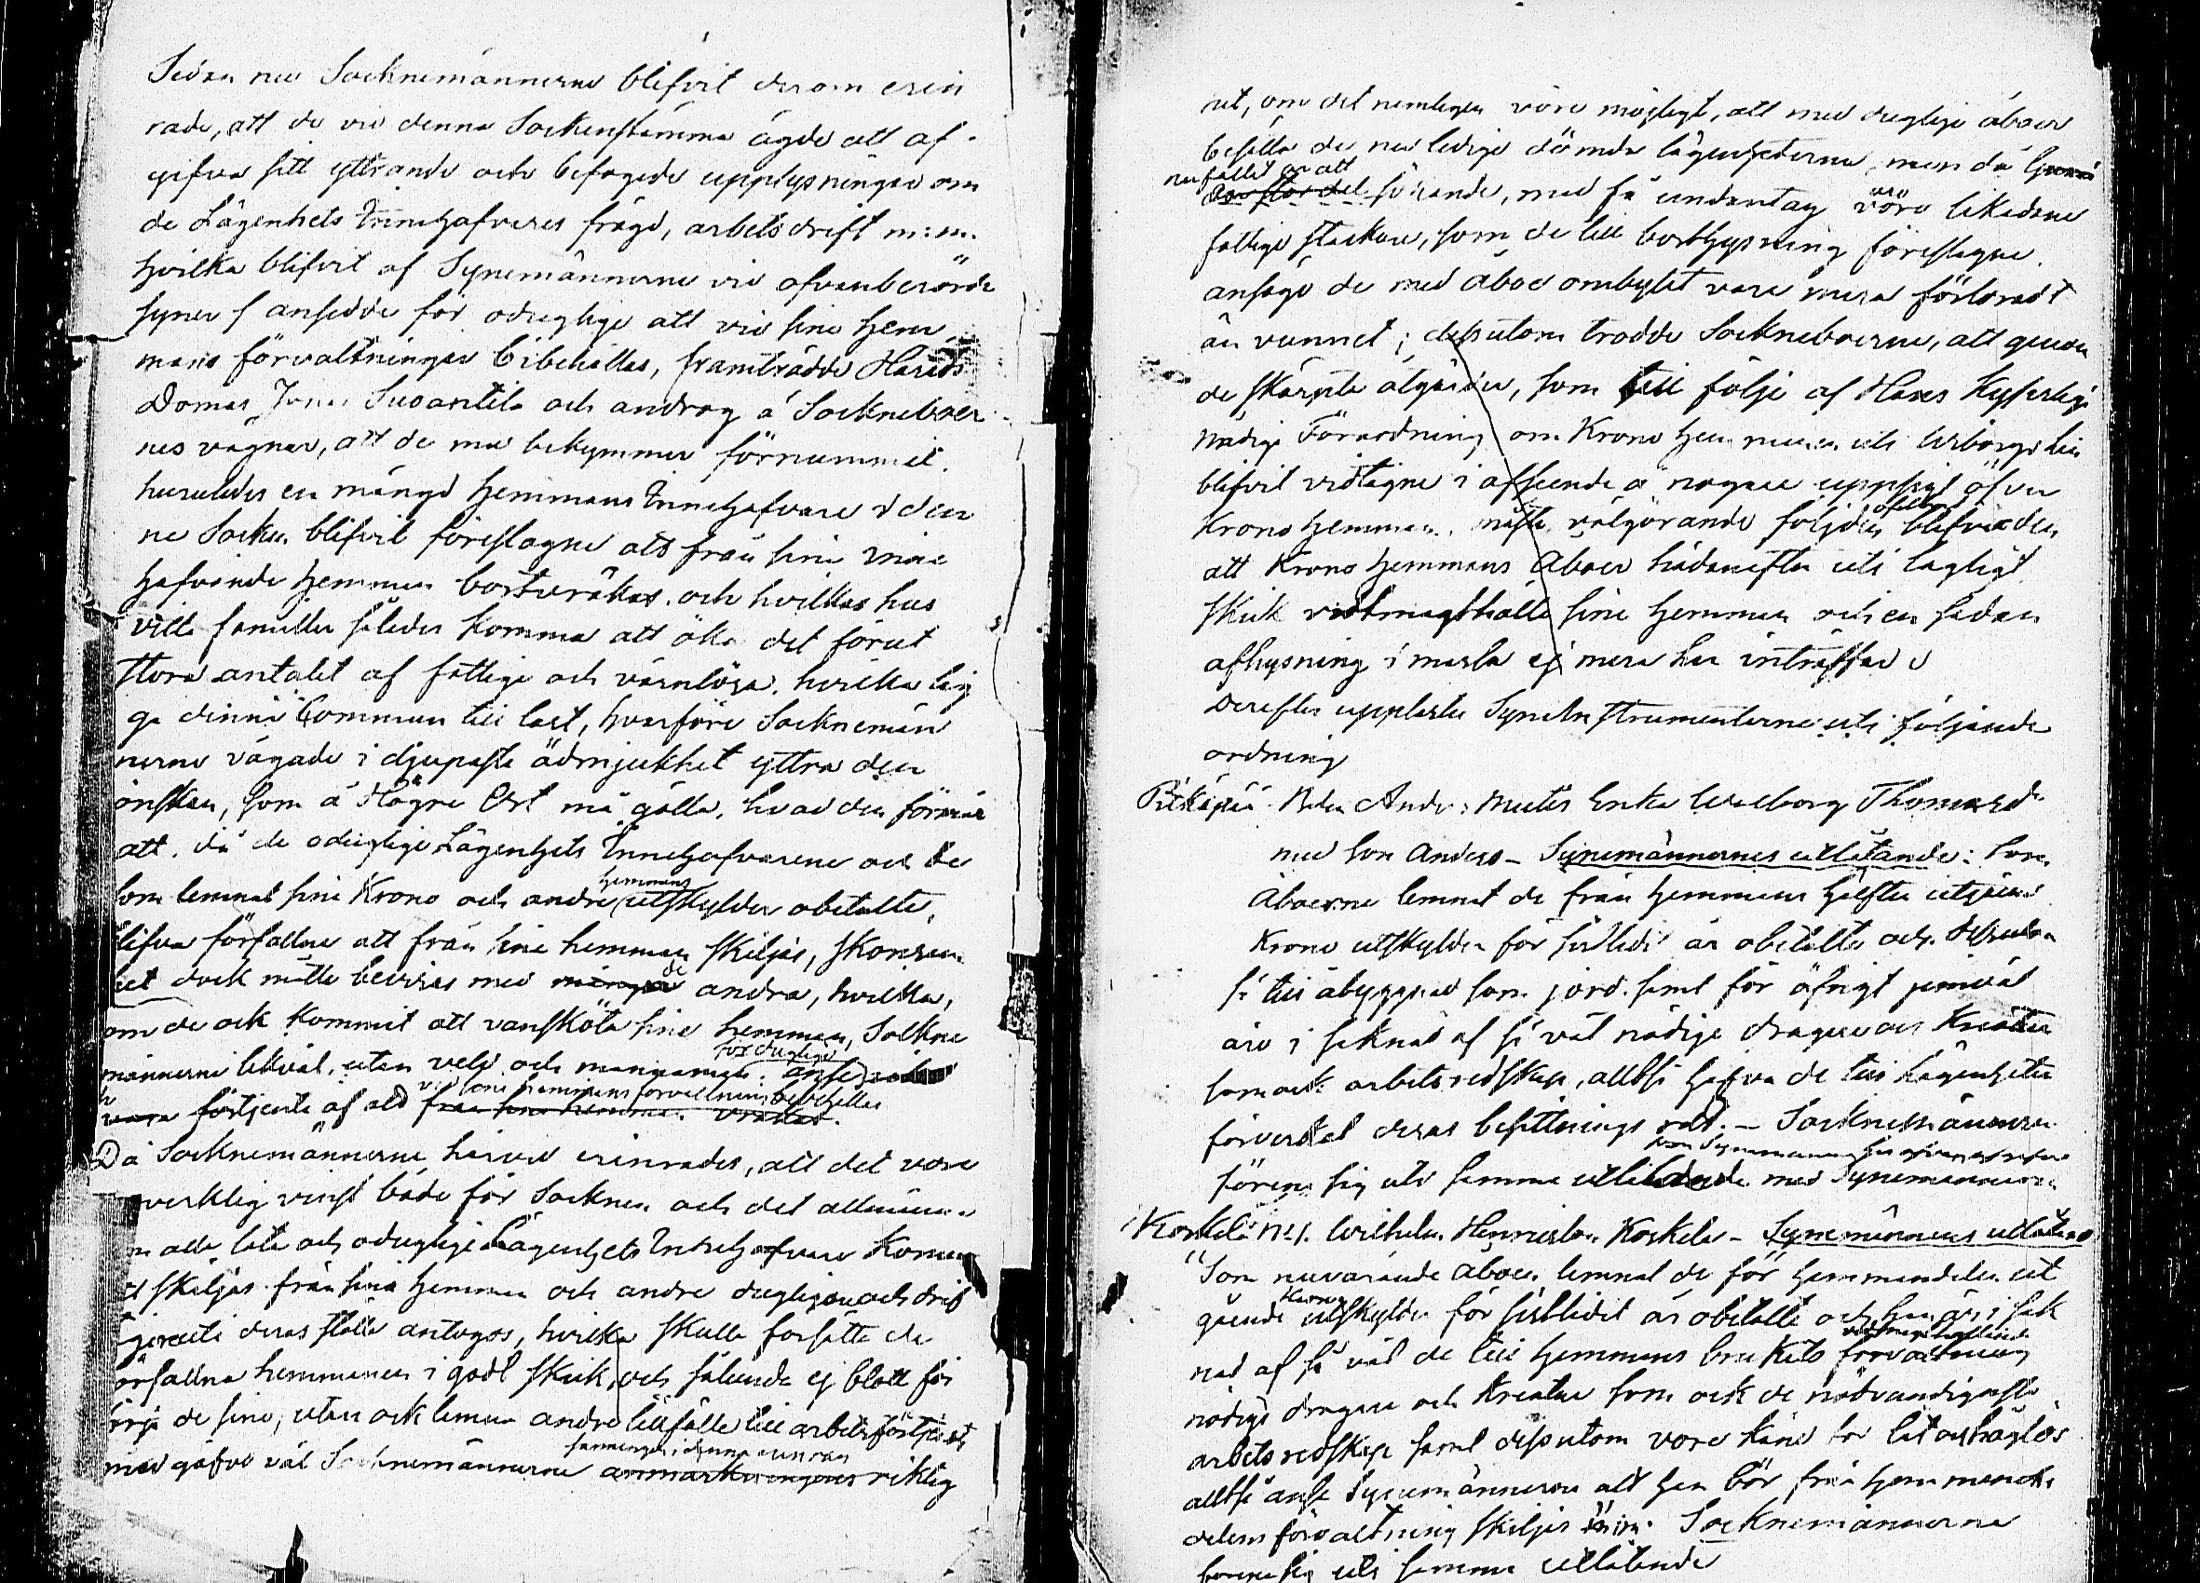 Sedan nu Socknemännerne blifvit derom erin
rade, att de vid denna Sockenstämma ägde att af-
gifva sitt yttrande och befogede upplysningar om
de Lägenhets Innehafvares frägd, arbetsdrift m:m.
hvilka blifvit af Synemännerne vid ofvanberörde
syner ansedde för odugligе att vid sine hem
mans förvaltningar bibehållas, framträdde Härads
Domar Susantila och androg å Sockneboer
nes vägnar, att de med bekymmer förnummit,
huruledes en mängd hemmans Innehafvare i den
ne Socken blifvit föreslagne att från sine inne
hafvande hemman bortvräkas, och hvilkas hus
villa familler således komma att öka det förut
stora antalet af fattige och värnlösa, hvilka lig
ga denna Commun till last, hvarföre Socknemän
nerne vågade i djupaste ödmjukhet yttra den
önskan, som å Högre Ort må gälla, hvad den förmår
att, då de odugligе Lägenhets Innehafvarene och de
som lemnat sine Krono och andre hemmans utskylder obetalte,
blifva förfallne att från sine hemman skiljas, skonsam
het dock måtte bevisas med de andra, hvilka,
om de ock kommit att vansköta sine hemman, Sockne
männerne likväl, utan veld och mannamån, anse för dugligе
förtjente af att vid sine hemmans förvaltning bibehållas
Då Socknemännerne härvid erinrades, att det vore
verklig vinst både för Socknen och det allmänna
om alla lata och odugligе Lägenhets Innehafvare komme
att skiljas från sina hemman och andre dugligare och drif
tigare uti deras ställe antogos, hvilka skulle försätta de
förfallna hemmanen i godt skick, och sålunda ej blott för
sörja de sine, utan ock lemna andre tillfälle till arbetsförtjenst,
medgåfvo väl Socknemännerne sanningen i denna anmärkningens riktig
het, om det nemligen vore möjligt, att med dugligе åboer
besätta de nu ledige dömda lägenheterne, men då
nu fallet är att sökande, med få undantag vore likadane
fattige stackare, som de till bortlysning föreslagne,
ansågo de med åboe ombytet vara mera förloradt
än vunnet; dessutom trodde Socknebοerne, att genom
de skärpta åtgärder, som till följe af Hans Kejserlige
Nådige Förordning om Krono hemmanen uti Wiborgs län
blifvit vidtagne i afseende å nogare uppsigt öfver
Krono hemman, välgörande följder blifva den
att Krono hemmans Åboer hädanefter uti lagligt
skick vidtmagthålla sine hemman och en sådan
afhysning i massa ej mera här inträffar
Derefter upplästes Syne Instrumenterne uti följande
ordning
Pitkäpää Anders Enka Walborg Thomasd:r
med Son Anders – Synemännernes utlåtande: Som
Åboerne lemnat de från hemmans hälften utgående
Krono utskylder för sistledit år obetalte och dessutom
så till åbyggnad som jord samt för öfrigt
äro i saknad af så väl nödige dragare och Kreatur
som ock arbetsredskap, alltså hafva de till Lägenheten
förverkat deras besittnings rätt. – Socknemännerne
förena sig uti samma utlåtande med Synemännerne
Koskela N:o 1. Wilhelm Henriksson Koskela – Synemännens utlåtand
"Som nuvarande åboen lemnat de för hemmandelen ut
gående Krono utskylder för sistledit år obetalte och han är i sak
nad af så väl de till hemmans brukets vidmagthållande
nödige dragare och Kreatur som ock de nödvändigaste
arbetsredskap samt dessutom vore känd för lat och håglös
alltså anse Synemännerne att han bör från hemmans
delens förvaltning skiljas". Socknemännerne
förena sig uti samma utlåtande